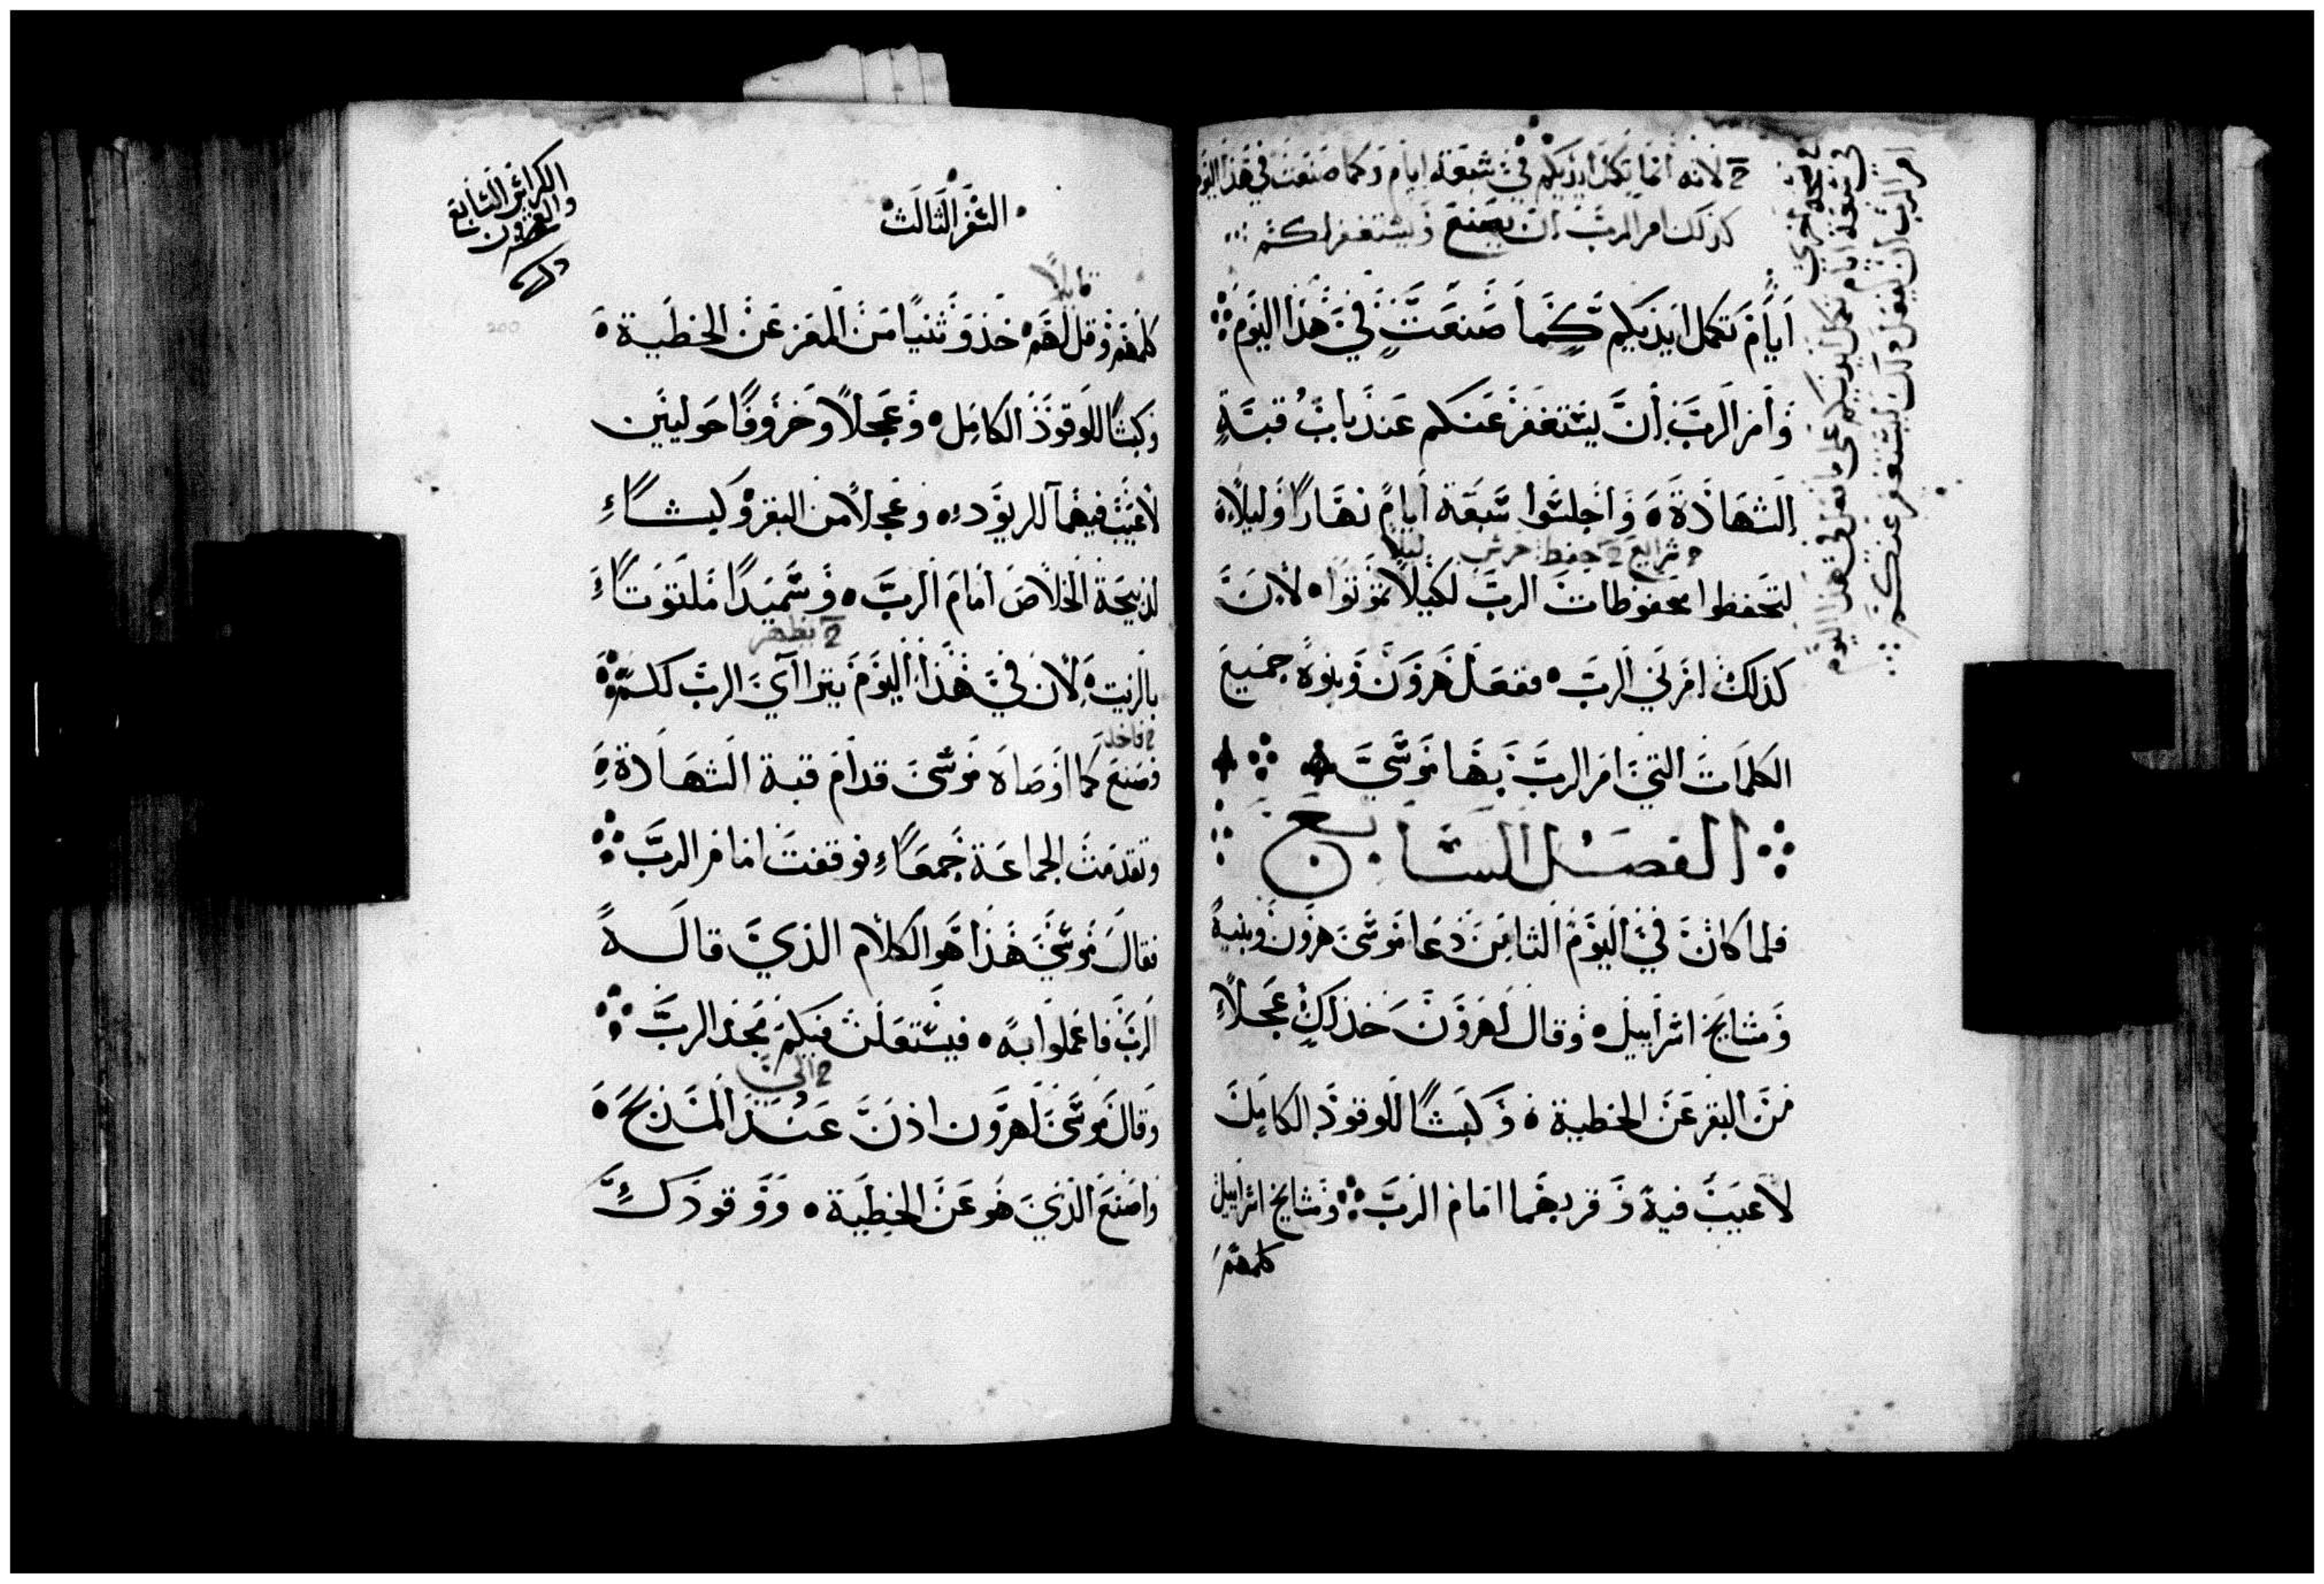 لانه انما تكمل ايديكم في سبعة ايام وكما صنعت في هذا اليوم
كذلك امر الرب ان يصنع ويستغفر لكم
ايام تكمل ايديكم كما صنعت في هذا اليوم
وامر الرب ان يستغفر عنكم عند باب قبة
الشهادة واجلسوا سبعة ايام نهارا وليلا
لتحفظوا محفوظات الرب لكيلا تموتوا لان
كذلك امرني الرب ففعل هرون وبنوه جميع
الكلمات التي امر الرب بها موسى
الفصل السابع
فلما كان في اليوم الثامن دعا موسى هرون وبنيه
ومشايخ اسراييل وقال لهرون خذ لك عجلا
من البقر عن الخطية وكبشا للوقود الكامل
لا عيب فيه وقربهما امام الرب ومشايخ اسراييل
كلمهم
في نسخة اخرى
في سبعة ايام تكمل ايديكم على ما فعل في هذا اليوم
امر الرب ان يفعل ذلك ليستغفر عنكم
السفر الثالث
الكراس السابع
والعشرون
قايلا
كلمهم وقل لهم خذو ثنيا من المعز عن الخطية
وكبشا للوقود الكامل وعجلا وخروفا حوليين
لا عيب فيهما للريود وعجلا من البقر وكبشا
لذبيحة الخلاص امام الرب وسميدا ملتوتا
يظهر
بالزيت لان في هذا اليوم يتراآي الرب لكم
فاخذ
فصنع كما اوصاه موسى قدام قبة الشهادة
وتقدمت الجماعة جمعا فوقفت امام الرب
فقال موسى هذا هو الكلام الذي قاله
الرب فاعملوا به فيستعلن فيكم مجد الرب
الى
وقال موسى لهرون ادن عند المذبح
واصنع الذي هو عن الخطية ووقودك